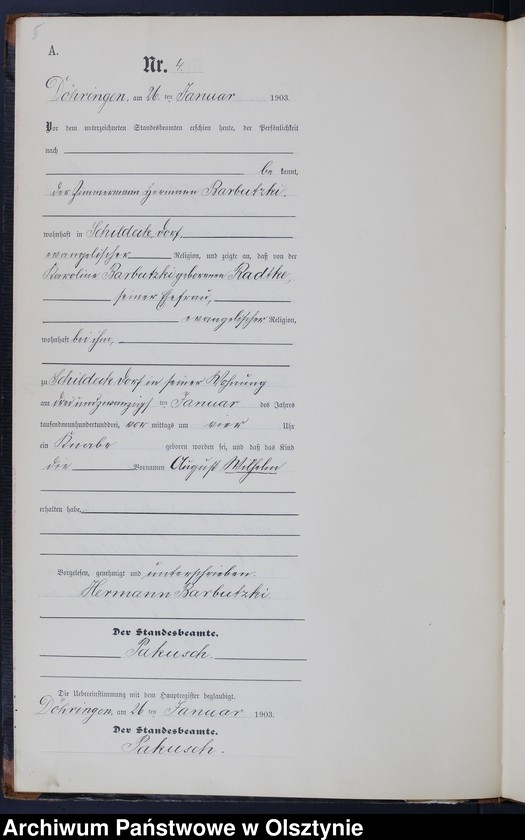 5
A.
Nr. 4.
Döhringen, am 26 ten Januar 1903.
Vor dem unterzeichneten Standesbeamten erschien heute, der Persönlichkeit
nach
be kannt,
der Zimmermann Hermann Barbutzki.
wohnhaft in Schildeck Dorf,
evangelischer Religion, und zeigte an, daß von der
Karoline Barbutzki geborenen Radtke,
seiner Ehefrau,
evangelischer Religion,
wohnhaft bei ihm,
zu Schildeck Dorf in seiner Wohnung
am dreiundzwanzigsten ten Januar des Jahres
tausendneunhundertunddrei, vor mittags um vier Uhr
ein Knabe geboren worden sei, und daß das Kind
die Vornamen August Wilhelm
erhalten habe.
Vorgelesen, genehmigt und unterschrieben.
Hermann Barbutzki.
Der Standesbeamte.
Pakusch
Die Uebereinstimmung mit dem Hauptregister beglaubigt.
Döhringen, am 26 ten Januar 1903.
Der Standesbeamte.
Pakusch.
Archiwum Państwowe w Olsztynie